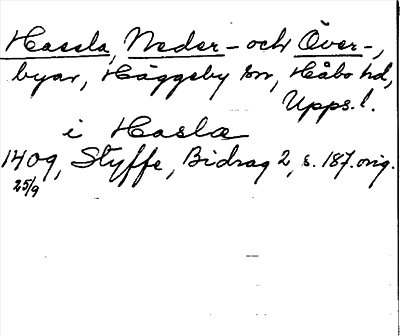 Hassla, Neder- och Över-,
byar, Häggeby sn, Håbo hd,
Upps. l.
i Hasla
1409, Styffe, Bidrag 2, s. 187. orig.
25/9